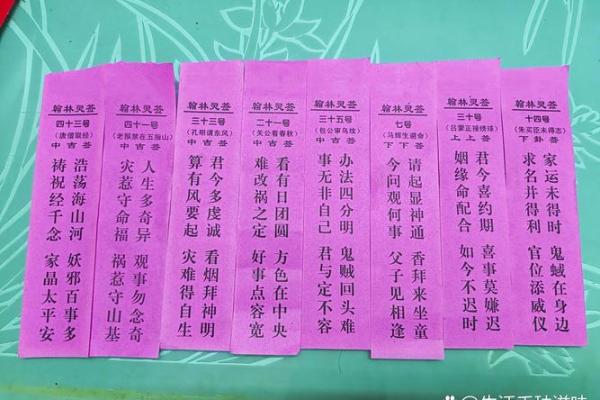 翰林灵荅
四十三号
（唐僧取经）
中吉荅
浩荡海山河 妖邪百事多
祷祝经千念 家晶太平安
翰林灵荅
四十一号
（老猴禁在五指山）
中吉荅
人生多奇异 观事勿念奇
灾惹守命福 祸惹守山基
翰林灵荅
三十三号
（孔明请东风）
中吉荅
君今多虔诚 看烟拜神明
算有风要起 灾难得自生
翰林灵荅
二十一号
（关公看春秋）
中吉荅
看有日团圆 方色在中央
难改祸之定 好事点容宽
翰林灵荅
三十五号
（包公审乌坟）
中吉荅
办法四分明 鬼贼回头难
事无非自己 君与定不容
翰林灵荅
七号
（马辉生避命）
下下荅
请起显神通 香拜来坐童
今问观何事 父子见相逢
翰林灵荅
三十号
（吕蒙正接绣球）
上上荅
君今喜约期 喜事莫嫌迟
姻缘命配合 如今不迟时
翰林灵荅
十四号
（朱买臣未得志）
下卦荅
家运未得时 鬼蜮在身边
求名并得利 官位添威仪